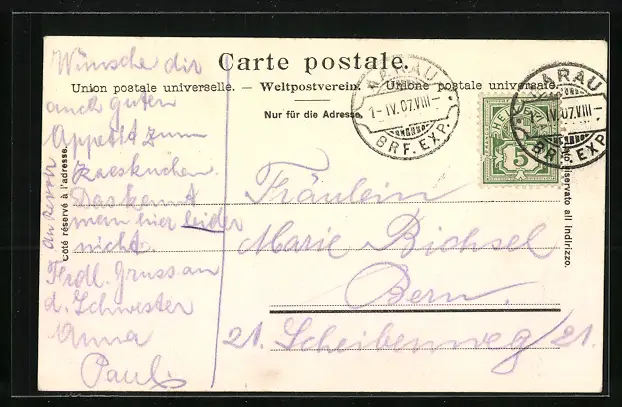 Carte postale.
Union postale universelle. — Weltpostverein. — Unione postale universale.
Nur für die Adresse.
Côté réservé à l'adresse.
Lato riservato all'indirizzo.
AARAU
1-IV.07.VIII-
BRF. EXP.
AARAU
1-IV.07.VIII-
BRF. EXP.
HELVETIA
5
Wünsche dir
auch guten
Appetit zum
Das kennt
man hier leider
nicht.
Frdl. Gruss an
d. Schwester
Anna
Paul
Fräulein
Marie Bichsel
Bern.
21. Scheibenweg 21.